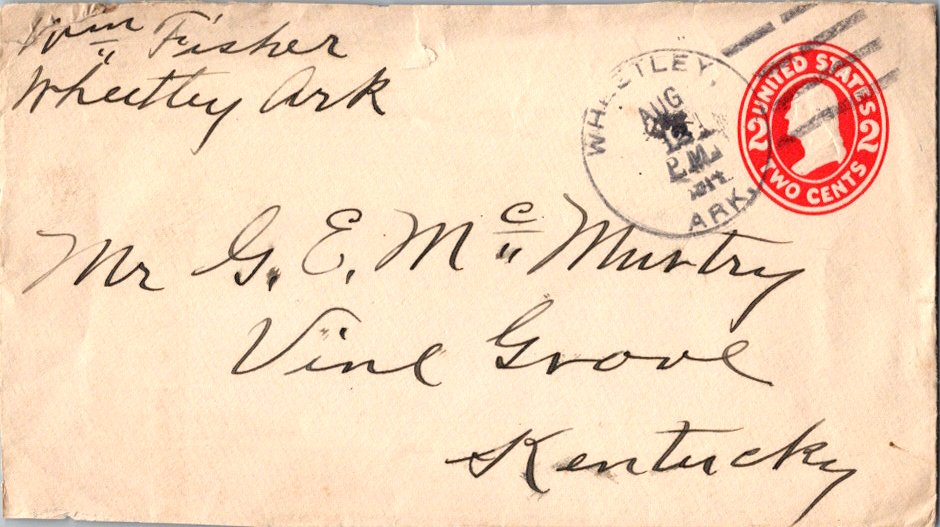 Wm Fisher
Wheatley Ark
WHEATLEY,
AUG
P.M.
ARK.
UNITED STATES
2 2
TWO CENTS
Mr G. E. Mc Murtry
Vine Grove
Kentucky